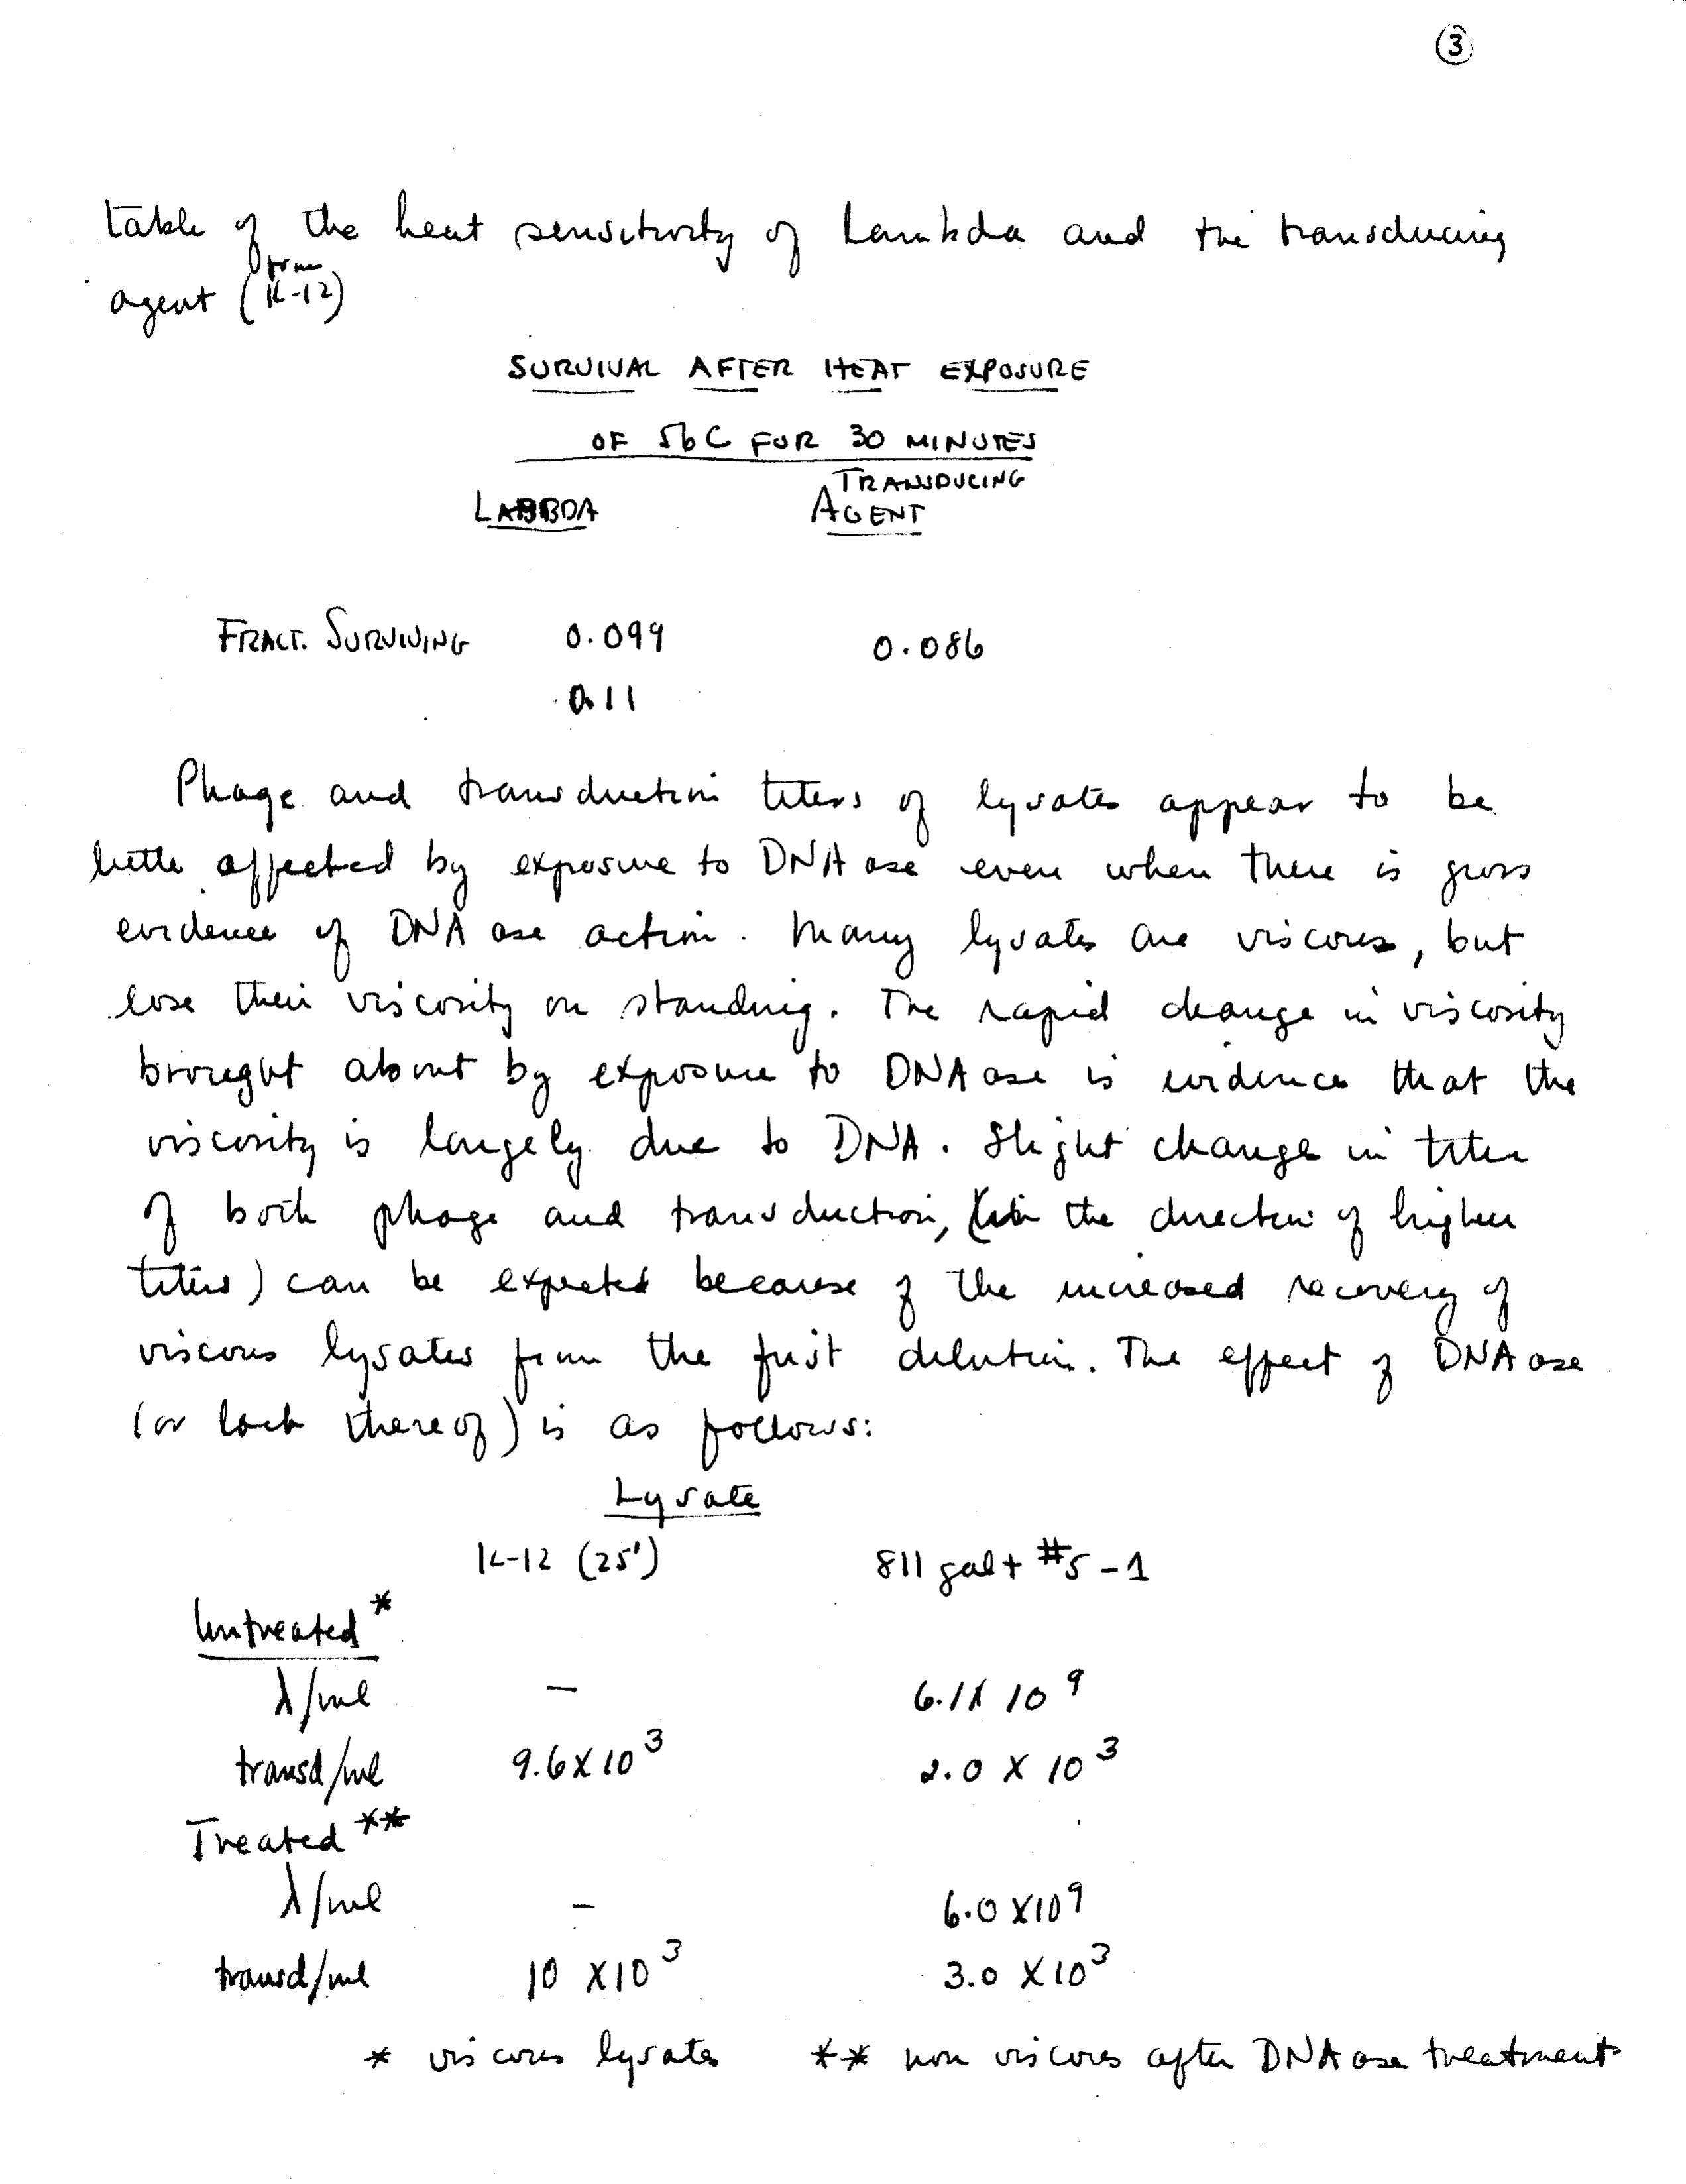 3
table of the heat sensitivity of Lambda and the transducing
from
agent (K-12)
SURVIVAL AFTER HEAT EXPOSURE
OF 56C FOR 30 MINUTES
TRANSDUCING
LABBDA AGENT
FRACT. SURVIVING 0.099 0.086
0.11
Phage and transduction titers of lysates appear to be
little affected by exposure to DNAase even when there is gross
evidence of DNAase action. Many lysates are viscous, but
lose their viscosity on standing. The rapid change in viscosity
brought about by exposure to DNAase is evidence that the
viscosity is largely due to DNA. Slight change in titer
of both phage and transduction, (in the direction of higher
titers) can be expected because of the increased recovery of
viscous lysates from the first dilution. The effect of DNAase
(or lack thereof) is as follows:
Lysate
K-12 (25') 811 gal+ #5-1
Untreated *
λ/ml – 6.1X 10⁹
transd/ml 9.6X10³ 2.0 X 10³
Treated **
λ/ml – 6.0 X10⁹
transd/ml 10 X10³ 3.0 X10³
* viscous lysates ** non viscous after DNAase treatment